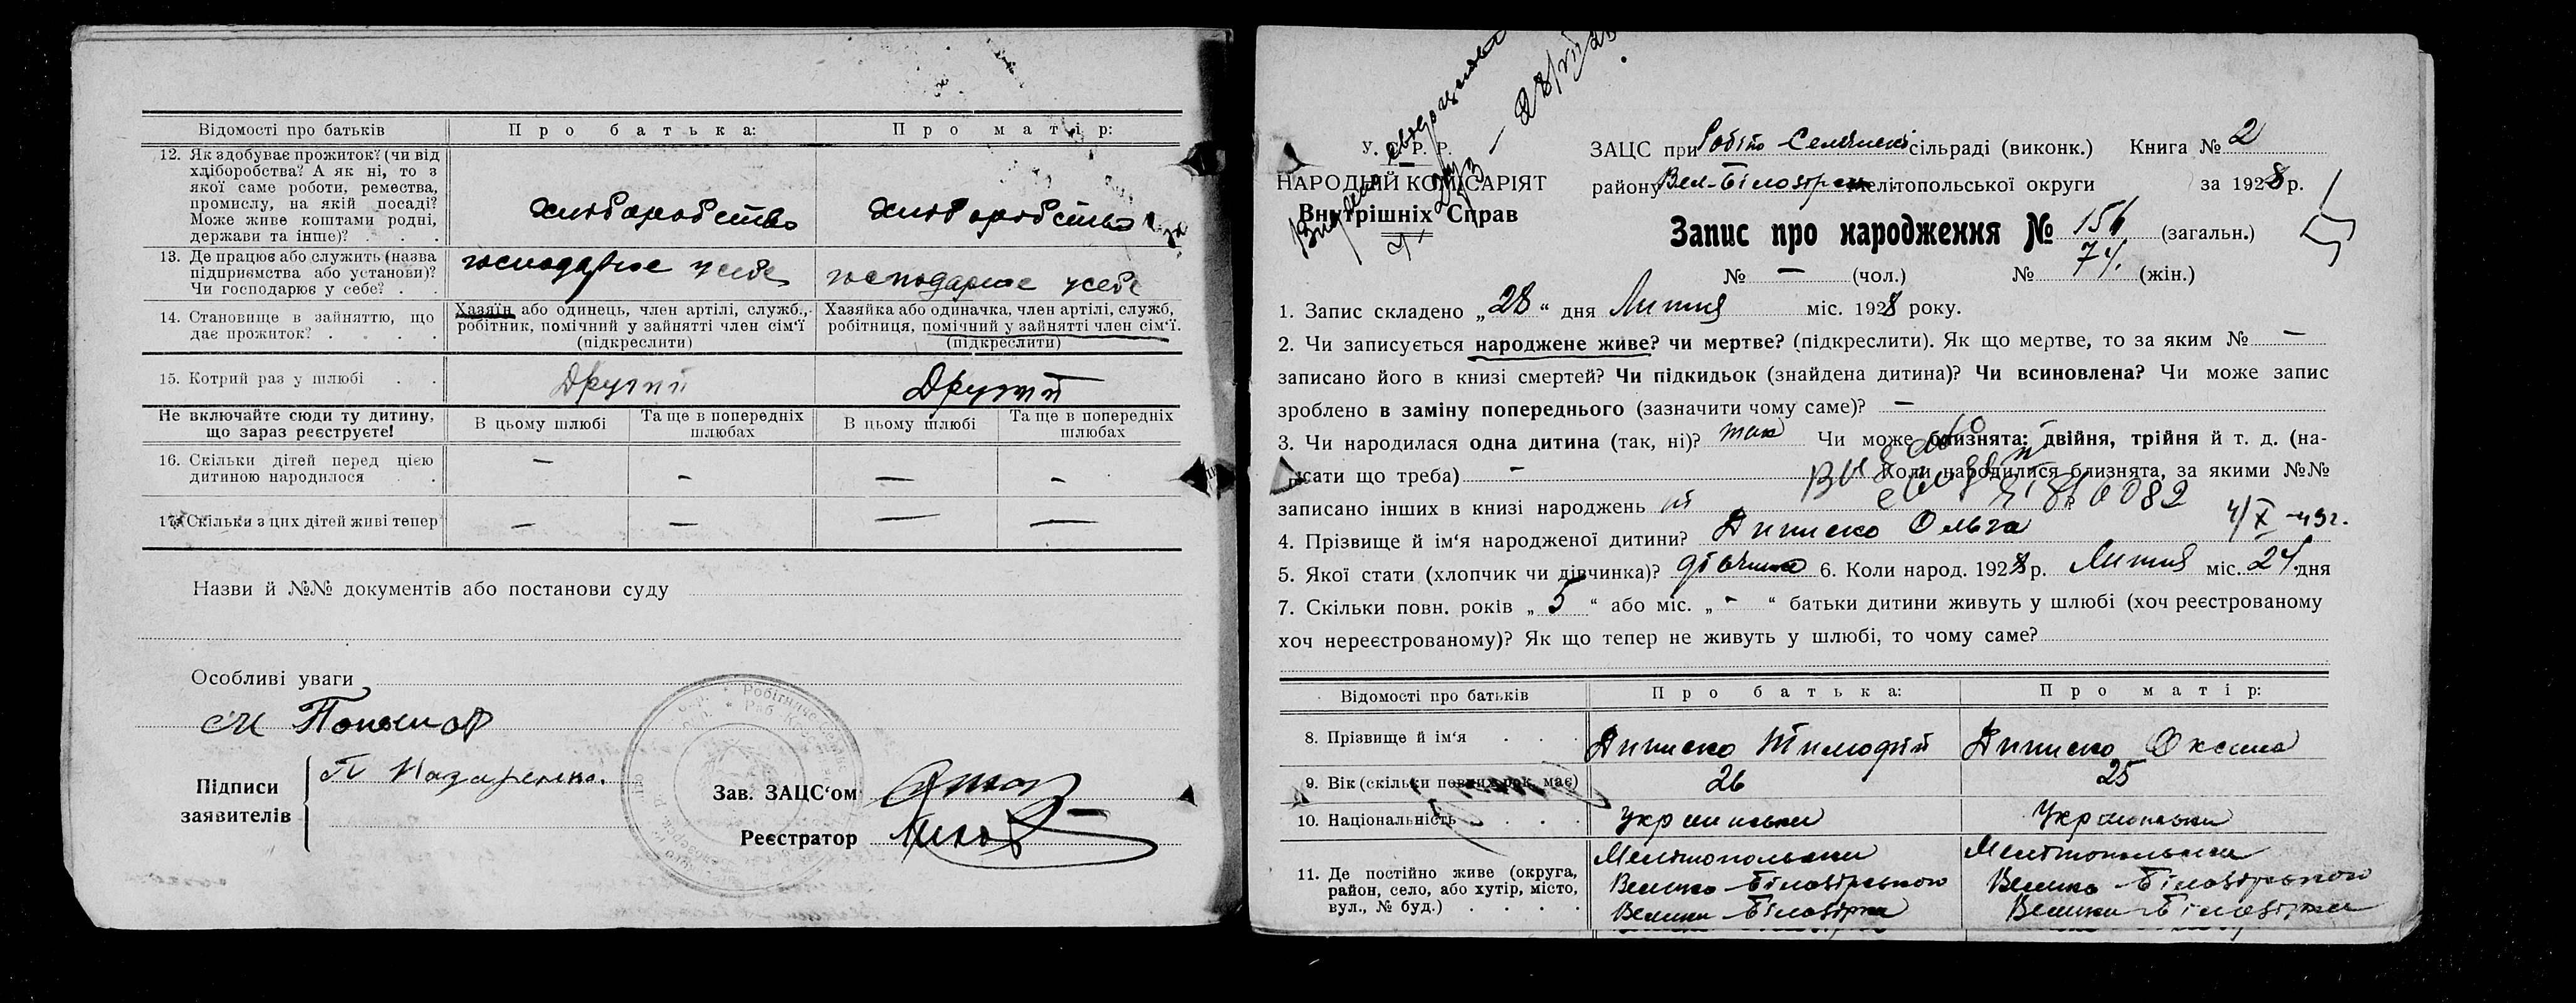 Відомості про батьків
Про батька:
Про матір:
12. Як здобуває прожиток? (чи від
хліборобства? А як ні, то з
якої саме роботи, ремества,
промислу, на якій посаді?
Може живе коштами родні,
держави та інше)? . . .
хліборобство
хліборобство
13. Де працює або служить (назва
підприємства або установи)?
Чи господарює у себе? . .
господарює у себе
господарює у себе
14. Становище в зайняттю, що
дає прожиток? . . . .
Хазяїн або одинець, член артілі, служб.,
робітник, помічний у зайнятті член сім'ї
(підкреслити)
Хазяйка або одиначка, член артілі, служб,
робітниця, помічний у зайнятті член сім'ї.
(підкреслити)
15. Котрий раз у шлюбі . .
Другий
Другий
Не включайте сюди ту дитину,
що зараз реєструєте!
В цьому шлюбі
Та ще в попередніх
шлюбах
В цьому шлюбі
Та ще в попередніх
шлюбах
16. Скільки дітей перед цією
дитиною народилося . .
— — — —
17. Скільки з цих дітей живі тепер
— — — —
Назви й №№ документів або постанови суду
Особливі уваги
Підписи
заявителів
П Назаренко.
Зав. ЗАЦС'ом
Реєстратор
У. С. Р. Р.
НАРОДНІЙ КОМІСАРІЯТ
Внутрішніх Справ
ЗАЦС при Робітно Селянські сільраді (виконк.) Книга № 2
району Вел-Білозірськ Мелітопольської округи за 1928 р.
Запис про народження № 156 (загальн.)
№ — (чол.) № 74. (жін.)
1. Запис складено „28“ дня Липня міс. 1928 року.
2. Чи записується народжене живе? чи мертве? (підкреслити). Як що мертве, то за яким № —
записано його в книзі смертей? Чи підкидьок (знайдена дитина)? Чи всиновлена? Чи може запис
зроблено в заміну попереднього (зазначити чому саме)? —
3. Чи народилася одна дитина (так, ні)? так Чи може близнята: двійня, трійня й т. д. (на-
писати що треба) — Коли народилися близнята, за якими №№
записано інших в книзі народжень
4/X-49г.
4. Прізвище й ім'я народженої дитини? Ольга
5. Якої стати (хлопчик чи дівчинка)? дівчинка 6. Коли народ. 1928 р. Липня міс. 24 дня
7. Скільки повн. років „5“ або міс. „-“ батьки дитини живуть у шлюбі (хоч реєстрованому
хоч нереєстрованому)? Як що тепер не живуть у шлюбі, то чому саме?
Відомості про батьків
Про батька:
Про матір:
8. Прізвище й ім'я . . .
Тимофій
Оксана
9. Вік (скільки повних рок. має)
26
25
10. Національність . . . .
Українськи
Українськи
11. Де постійно живе (округа,
район, село, або хутір, місто,
вул., № буд.) . . . .
Мелітопольськи
Велико-Білозірського
Велики-Білозірка
Мелітопольськи
Велико-Білозірського
Велики-Білозірка